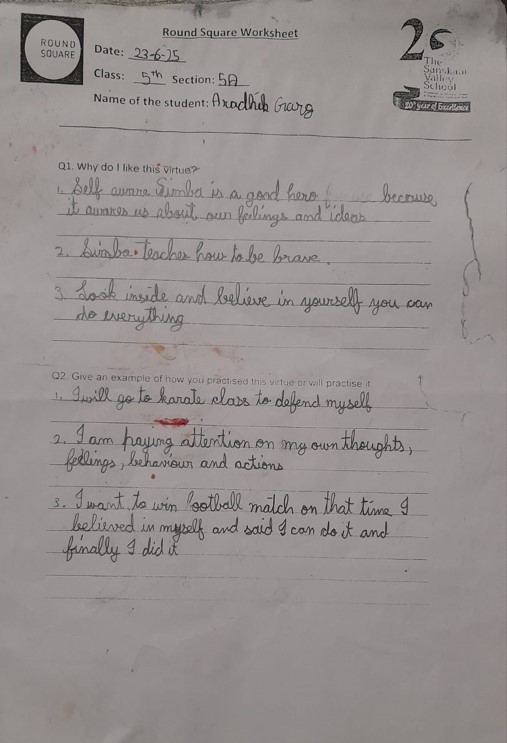 ROUND
SQUARE
Round Square Worksheet
Date: 23-6-25
Class: 5th Section: 5A
Name of the student: Aradhik Garg
The
Sanskaar
Valley
School
20th year of Excellence
Q1. Why do I like this virtue?
1. Self aware Simba is a good hero because
it awares us about our feelings and ideas
2. Simba teaches how to be brave.
3. Look inside and believe in yourself you can
do everything
Q2. Give an example of how you practised this virtue or will practise it
1. I will go to karate class to defend myself
2. I am paying attention on my own thoughts,
feelings, behaviour and actions
3. I want to win football match on that time I
believed in myself and said I can do it and
finally I did it